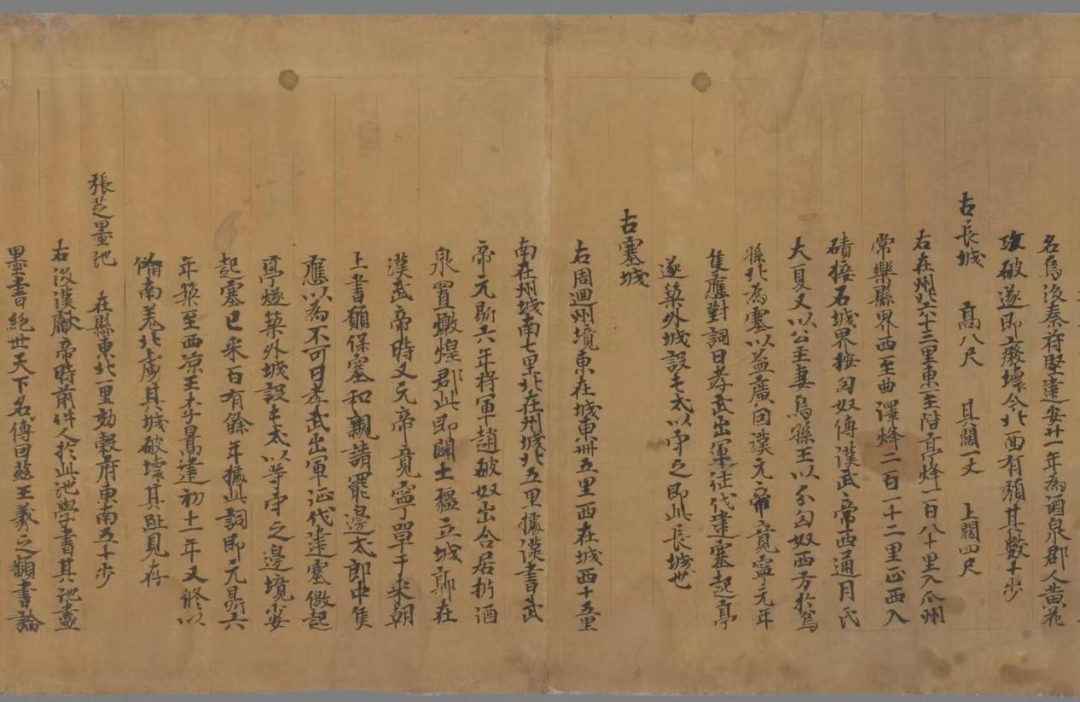 名烏後秦苻堅建安廿一年為酒泉郡人黃花
攻破遂即廢壞今北面有頹基數十步
古長城 高八尺 其闊一丈 上闊四尺
右在州北六十三里東至階亭烽一百八十里入瓜州
常樂縣界西至曲澤烽二百一十二里正西入
磧接石城界按匈奴傳漢武帝西通月氏
大夏又以公主妻烏孫王以分匈奴西方於烏
孫北為塞以益廣田漢元帝竟寧元年
隻應對詞曰孝武出軍征伐建塞起亭
遂築外城設屯戍以守之即此長城也
古塞城
右周迴州境東在城東卌五里西在城西十五里
南在州城南七里北在州城北五里據漢書武
帝元鼎六年將軍趙破奴出令居析酒
泉置燉煌郡此即闢土疆立城郭在
漢武帝時又元帝竟寧單于來朝
上書願保塞和親請罷邊戍郎中隻
應以為不可曰孝武出軍征伐建塞徼起
亭燧築外城設屯戍以守之邊境少安
起塞已來百有餘年據此詞即元鼎六
年築至西涼王李暠建初十一年又修以
備南羌北虜其城破壞其趾見存
張芝墨池 在縣東北一里効穀府東南五十步
右後漢獻帝時前件人於此池學書其池盡
墨書絕世天下名傳因茲王羲之顗書論